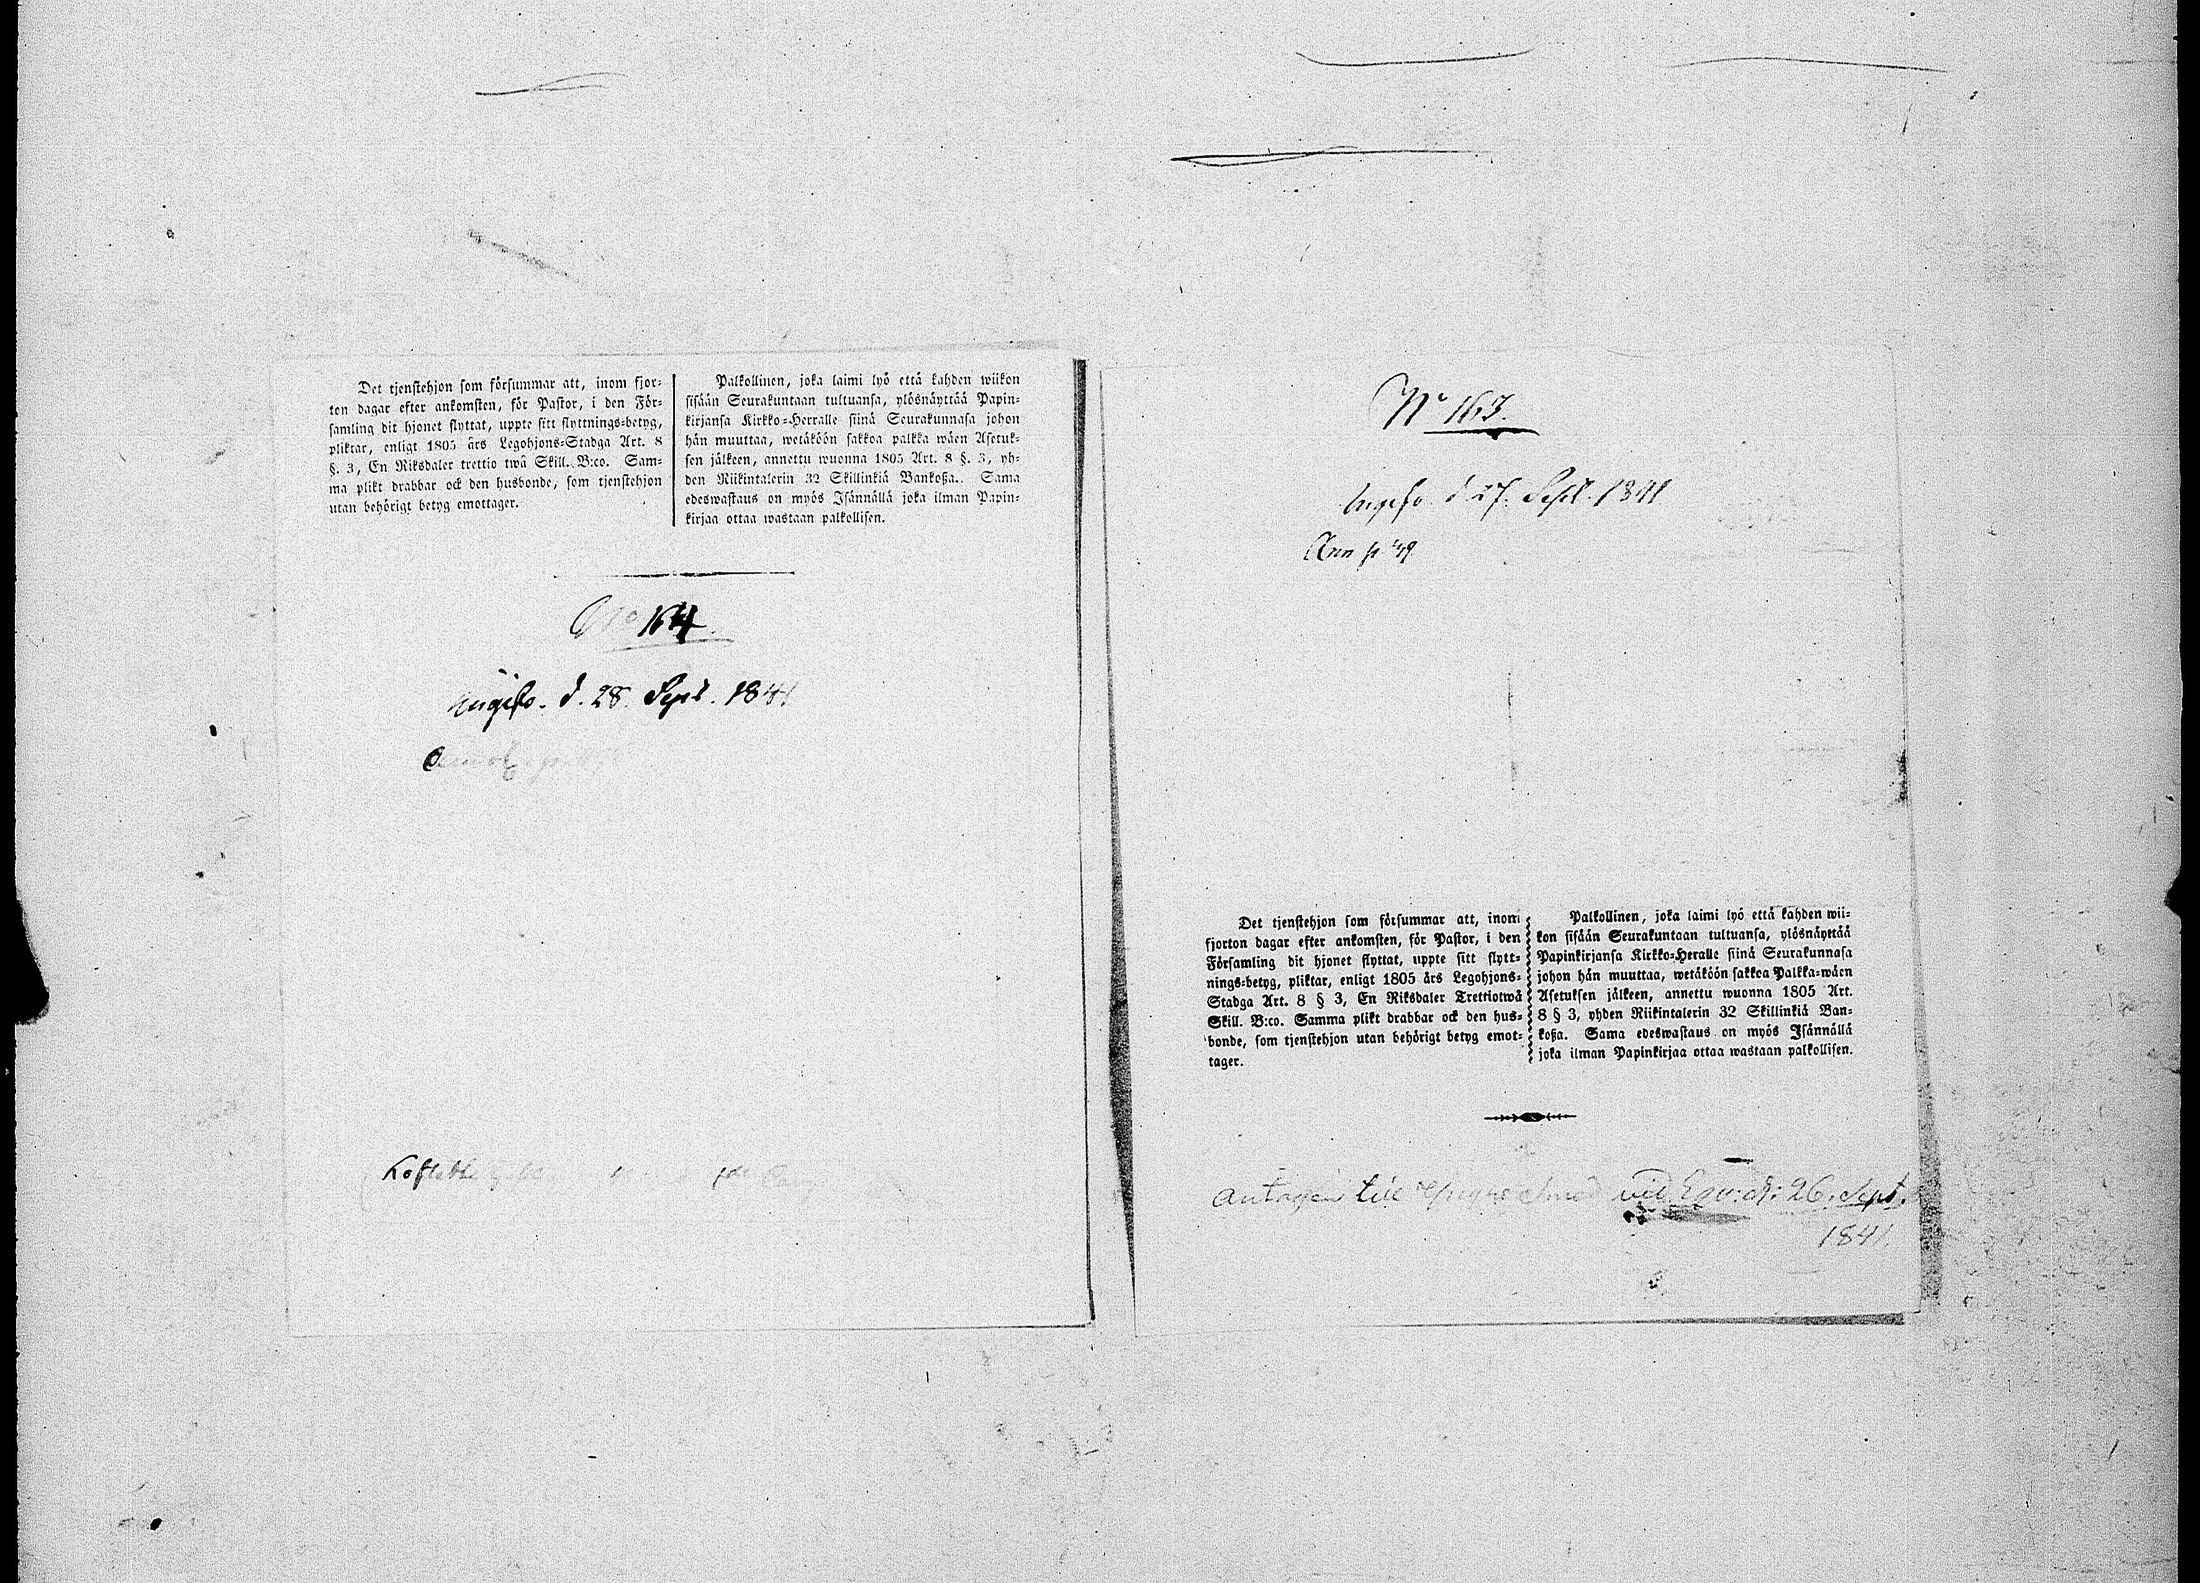 Det tjenstehjon som försummar att, inom fjor-
ton dagar efter ankomsten, för Pastor, i den För-
samling dit hjonet flyttat, uppte sitt flyttnings-betyg,
pliktar, enligt 1805 års Legohjons-Stadga Art. 8
§. 3, En Riksdaler trettio twå Skill. B:co. Sam-
ma plikt drabbar ock den husbonde, som tjenstehjon
utan behörigt betyg emottager.
Palkollinen, joka laimi lyö että kahden wiikon
sisään Seurakuntaan tultuansa, ylösnäyttää Papin-
kirjansa Kirkko-Herralle siinä Seurakunnasa johon
hän muuttaa, wetäköön sakkoa palkka wäen Asetuk-
sen jälkeen, annettu wuonna 1805 Art. 8 §. 3, yh-
den Riikintalerin 32 Skillinkiä Bankoßa. Sama
edeswastaus on myös Isännällä joka ilman Papin-
kirjaa ottaa wastaan palkollisen.
No 164.
d. 28. Sept. 1841
No 163.
d. 27. Sept. 1841
Ann p 49
Det tjenstehjon som försummar att, inom
fjorton dagar efter ankomsten, för Pastor, i den
Församling dit hjonet flyttat, uppte sitt flytt-
nings-betyg, pliktar, enligt 1805 års Legohjons-
Stadga Art. 8 § 3, En Riksdaler Trettiotwå
Skill. B:co. Samma plikt drabbar ock den hus-
bonde, som tjenstehjon utan behörigt betyg emot-
tager.
Palkollinen, joka laimi lyö että kahden wii-
kon sisään Seurakuntaan tultuansa, ylösnäyttää
Papinkirjansa Kirkko-Heralle siinä Seurakunnasa
johon hän muuttaa, wetäköön sakkoa Palkka-wäen
Asetuksen jälkeen, annettu wuonna 1805 Art.
8 § 3, yhden Riikintalerin 32 Skillinkiä Ban-
koßa. Sama edeswastaus on myös Isännällä
joka ilman Papinkirjaa ottaa wastaan palkollisen.
antagen till vid 26. Sept.
1841.